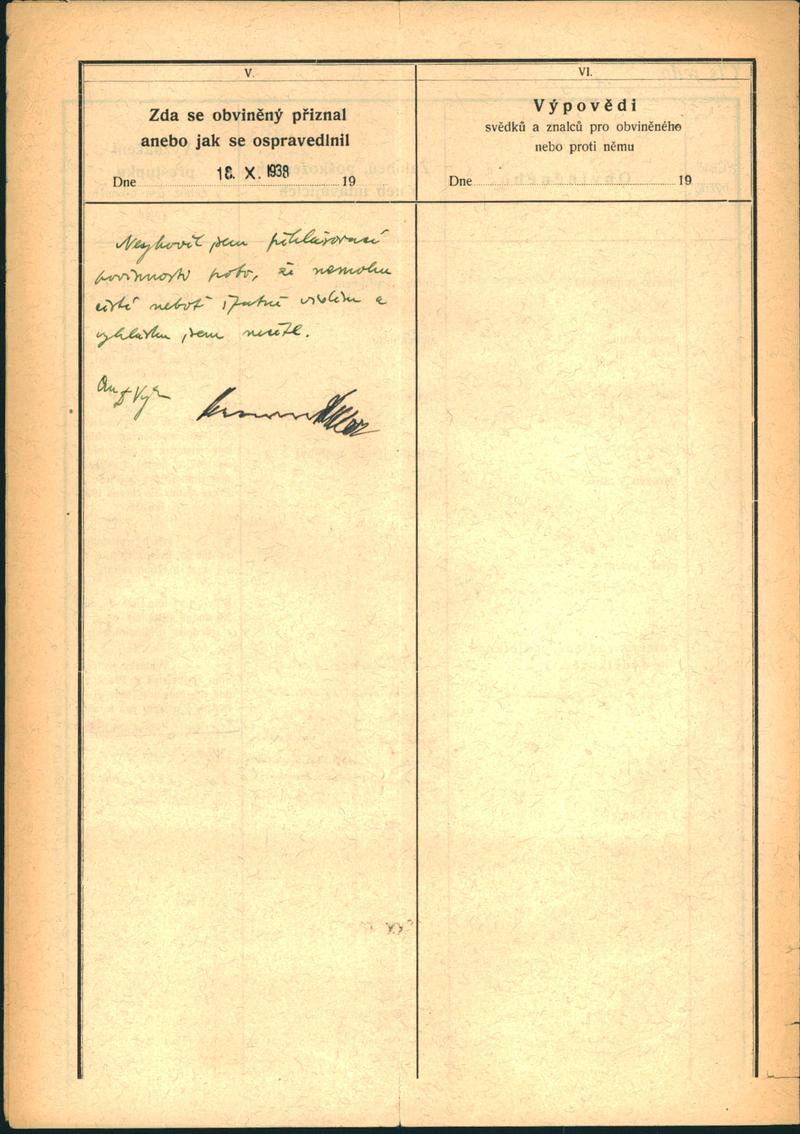 V.
Zda se obviněný přiznal
anebo jak se ospravedlnil
Dne 18. X. 1938 19
Nevyhověl jsem přihlašovací
povinnosti proto, že nemohu
čísti neboť špatně vidím a
vyhlášku jsem nečetl.
VI.
Výpovědi
svědků a znalců pro obviněného
nebo proti němu
Dne 19